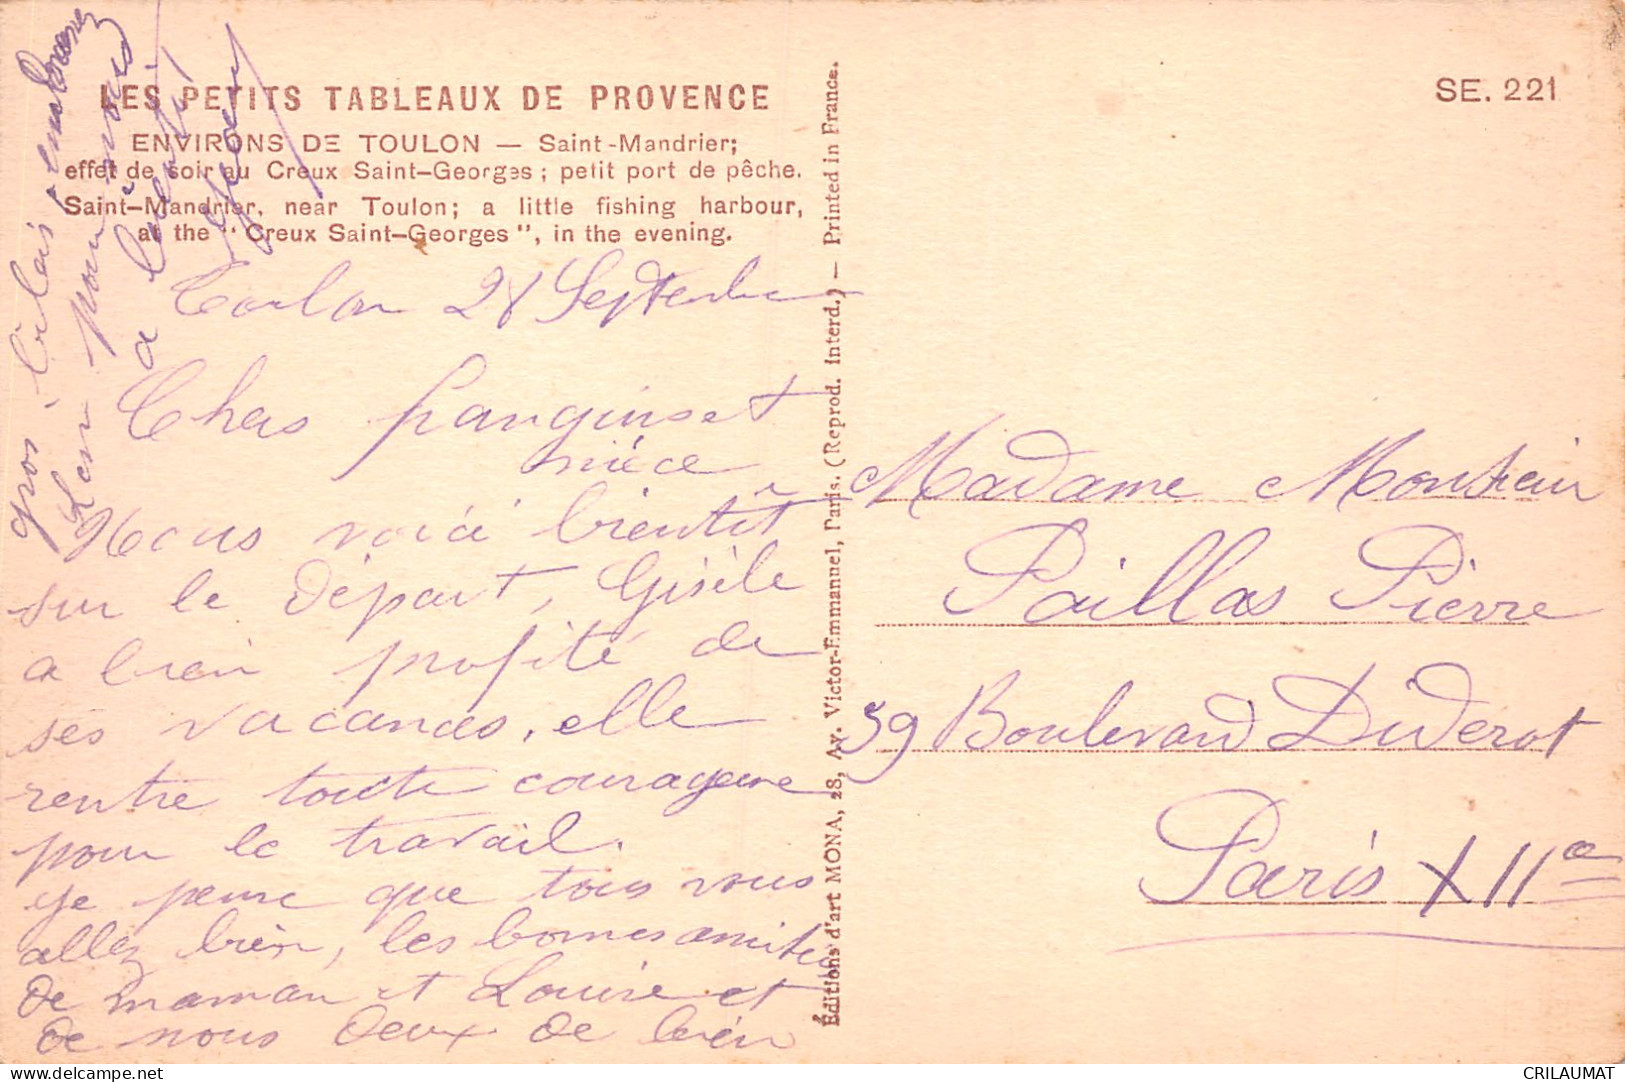 LES PETITS TABLEAUX DE PROVENCE
ENVIRONS DE TOULON — Saint-Mandrier;
effet de soir au Creux Saint-Georges; petit port de pêche.
Saint-Mandrier, near Toulon; a little fishing harbour,
at the "Creux Saint-Georges", in the evening.
SE. 221
Toulon 28 Septembre
Chers frangins et
nièce
Nous voici bientôt
sur le Départ, Gisèle
a bien profité de
ses vacances, elle
rentre toute courageuse
pour le travail.
Je pense que tous vous
allez bien, les bonnes amitiés
de maman et Louise et
de nous deux de bien
gros bibis, embrassez
pour nous
a bientôt
Éditions d'art MONA, 28, Av. Victor-Emmanuel, Paris. (Reprod. Interd.) — Printed in France.
Madame Monsieur
Paillas Pierre
59 Boulevard Diderot
Paris XIIe
CRILAUMAT